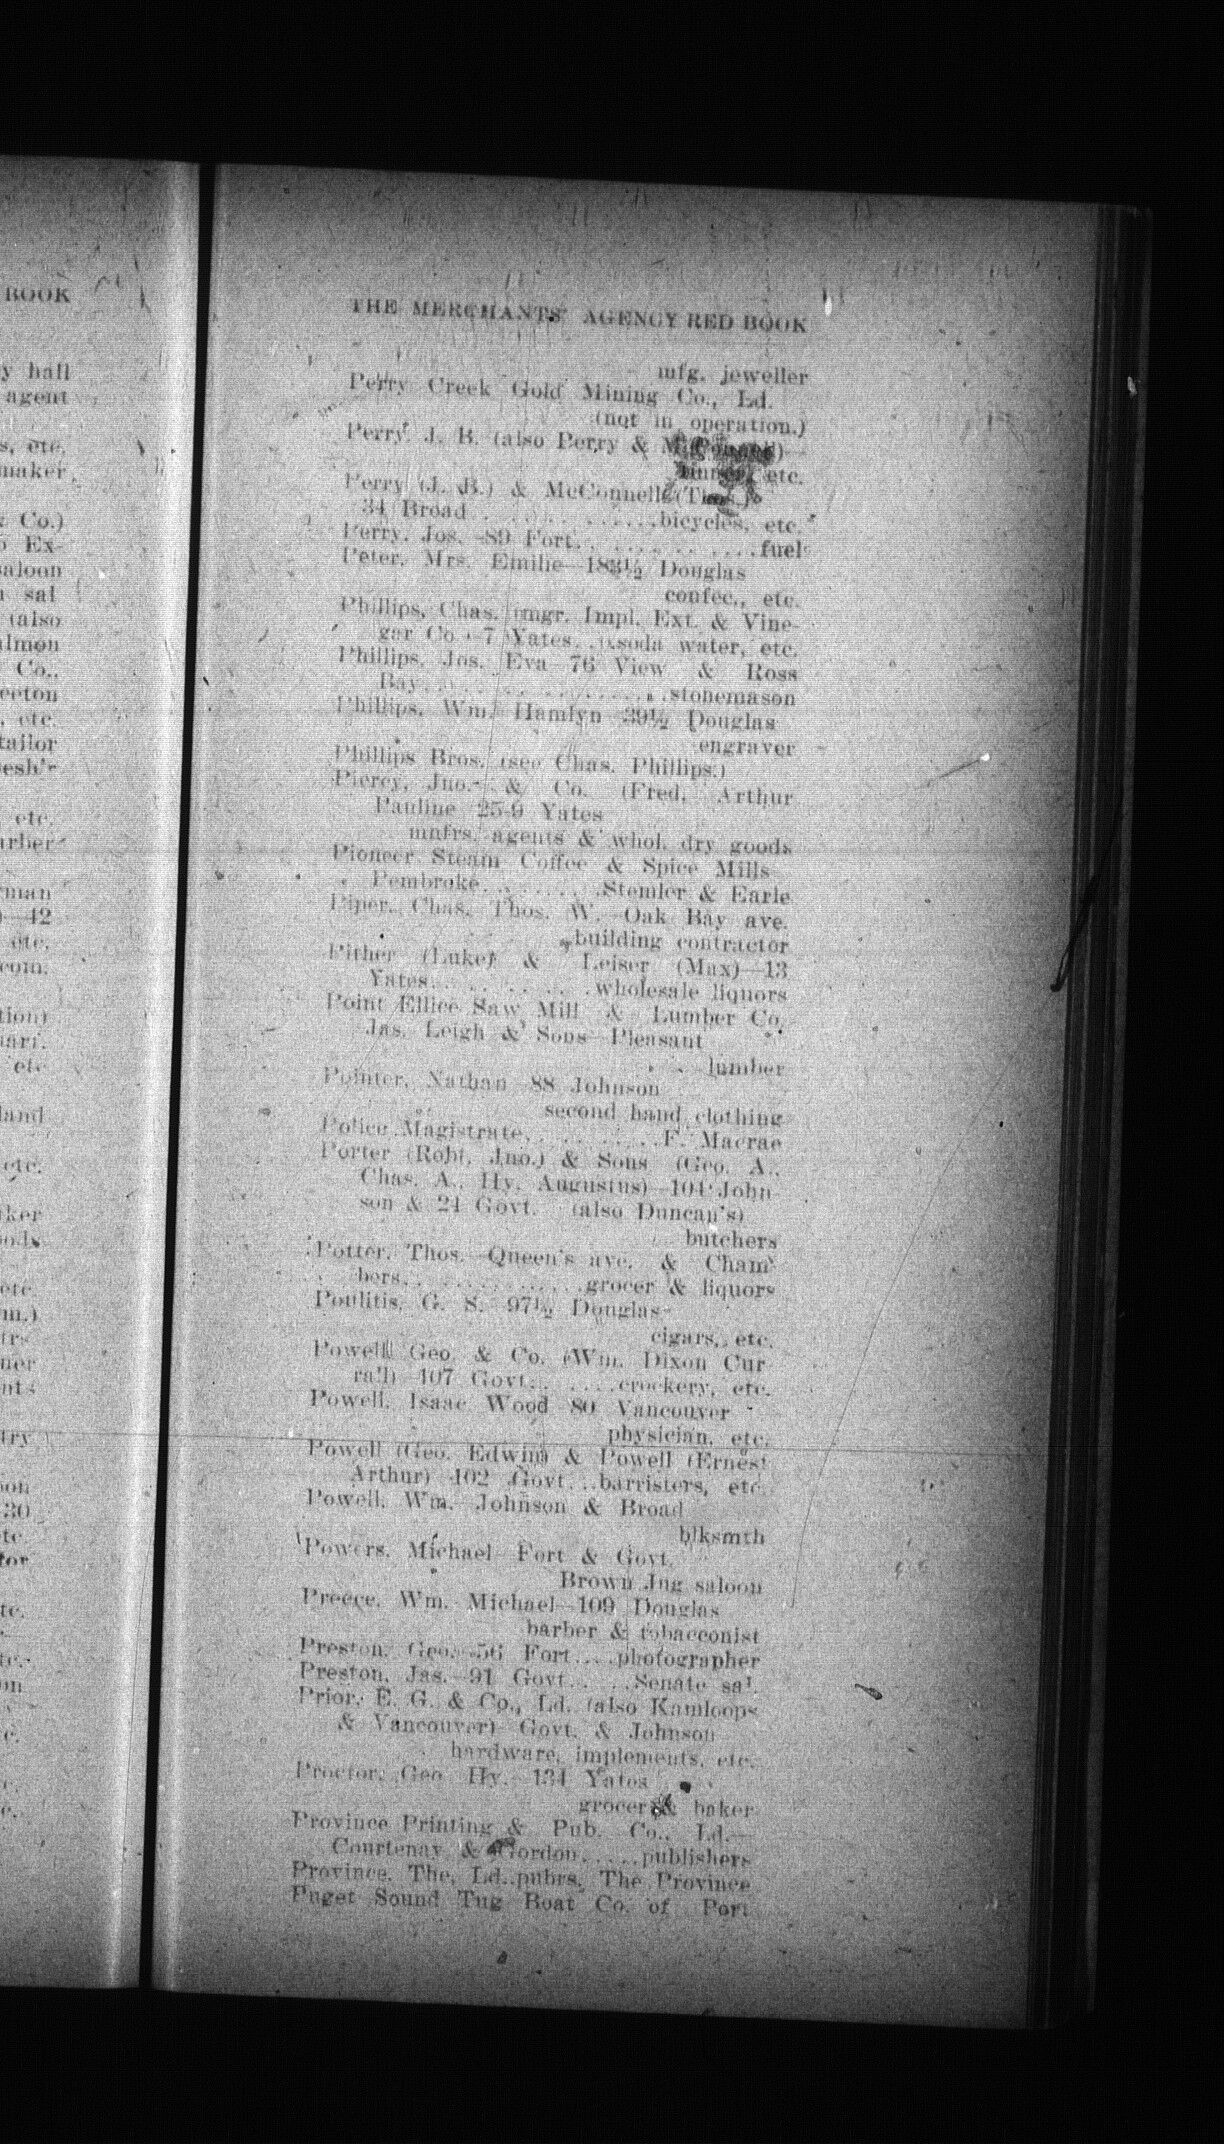 BOOK
y hall
agent
s, etc.
maker
& Co.)
5 Ex-
saloon
n sal
(also
almon
Co.,
eeton
, etc.
tailor
esh'r
etc.
arber
rman
)—42
etc.
com.
tion)
uari.
etc
land
etc.
ker
oods
etc
m.)
trs
ner
nts
try
on
30
etc
tor
tc.
tc.
on
c.
c.
c.
THE MERCHANTS' AGENCY RED BOOK
mfg. jeweller
Perry Creek Gold Mining Co., Ld.
(not in operation.)
Perry, J. B. (also Perry & McConnell)—
tinner, etc.
Perry (J. B.) & McConnell (Thos.)
34 Broad ............bicycles, etc.
Perry, Jos.—89 Fort............fuel
Peter, Mrs. Emilie—183½ Douglas
confec., etc.
Phillips, Chas. (mgr. Impl. Ext. & Vine-
gar Co.)—7 Yates...soda water, etc.
Phillips, Jos. Eva—76 View & Ross
Bay..................stonemason
Phillips, Wm. Hamlyn—39½ Douglas
engraver
Phillips Bros. (see Chas. Phillips.)
Piercy, Jno. & Co. (Fred. Arthur
Pauline—25-9 Yates
mnfrs. agents & whol. dry goods
Pioneer Steam Coffee & Spice Mills
Pembroke.........Stemler & Earle
Piper, Chas. Thos. W.—Oak Bay ave.
building contractor
Pither (Luke) & Leiser (Max)—13
Yates............wholesale liquors
Point Ellice Saw Mill & Lumber Co.
Jas. Leigh & Sons—Pleasant
lumber
Pointer, Nathan—88 Johnson
second hand clothing
Police Magistrate..........F. Macrae
Porter (Robt. Jno.) & Sons (Geo. A.,
Chas. A., Hy. Augustus)—104 John
son & 21 Govt. (also Duncan's)
butchers
Potter, Thos.—Queen's ave. & Cham
bers..............grocer & liquors
Poulitis, G. S. 97½ Douglas
cigars, etc.
Powell, Geo. & Co. (Wm. Dixon Cur
rall) 107 Govt.......crockery, etc.
Powell, Isaac Wood 80 Vancouver
physician, etc.
Powell (Geo. Edwin) & Powell (Ernest
Arthur) 102 Govt...barristers, etc.
Powell, Wm. Johnson & Broad
blksmth
Powers, Michael—Fort & Govt.
Brown Jug saloon
Preece, Wm. Michael—109 Douglas
barber & tobacconist
Preston, Geo.—56 Fort....photographer
Preston, Jas.—91 Govt.....Senate sal.
Prior, E. G. & Co., Ld. (also Kamloops
& Vancouver) Govt. & Johnson
hardware, implements, etc.
Proctor, Geo. Hy.—134 Yates
grocer & baker
Province Printing & Pub. Co., Ld.—
Courtenay & Gordon.....publishers
Province, The, Ld..pubrs. The Province
Puget Sound Tug Boat Co. of Port